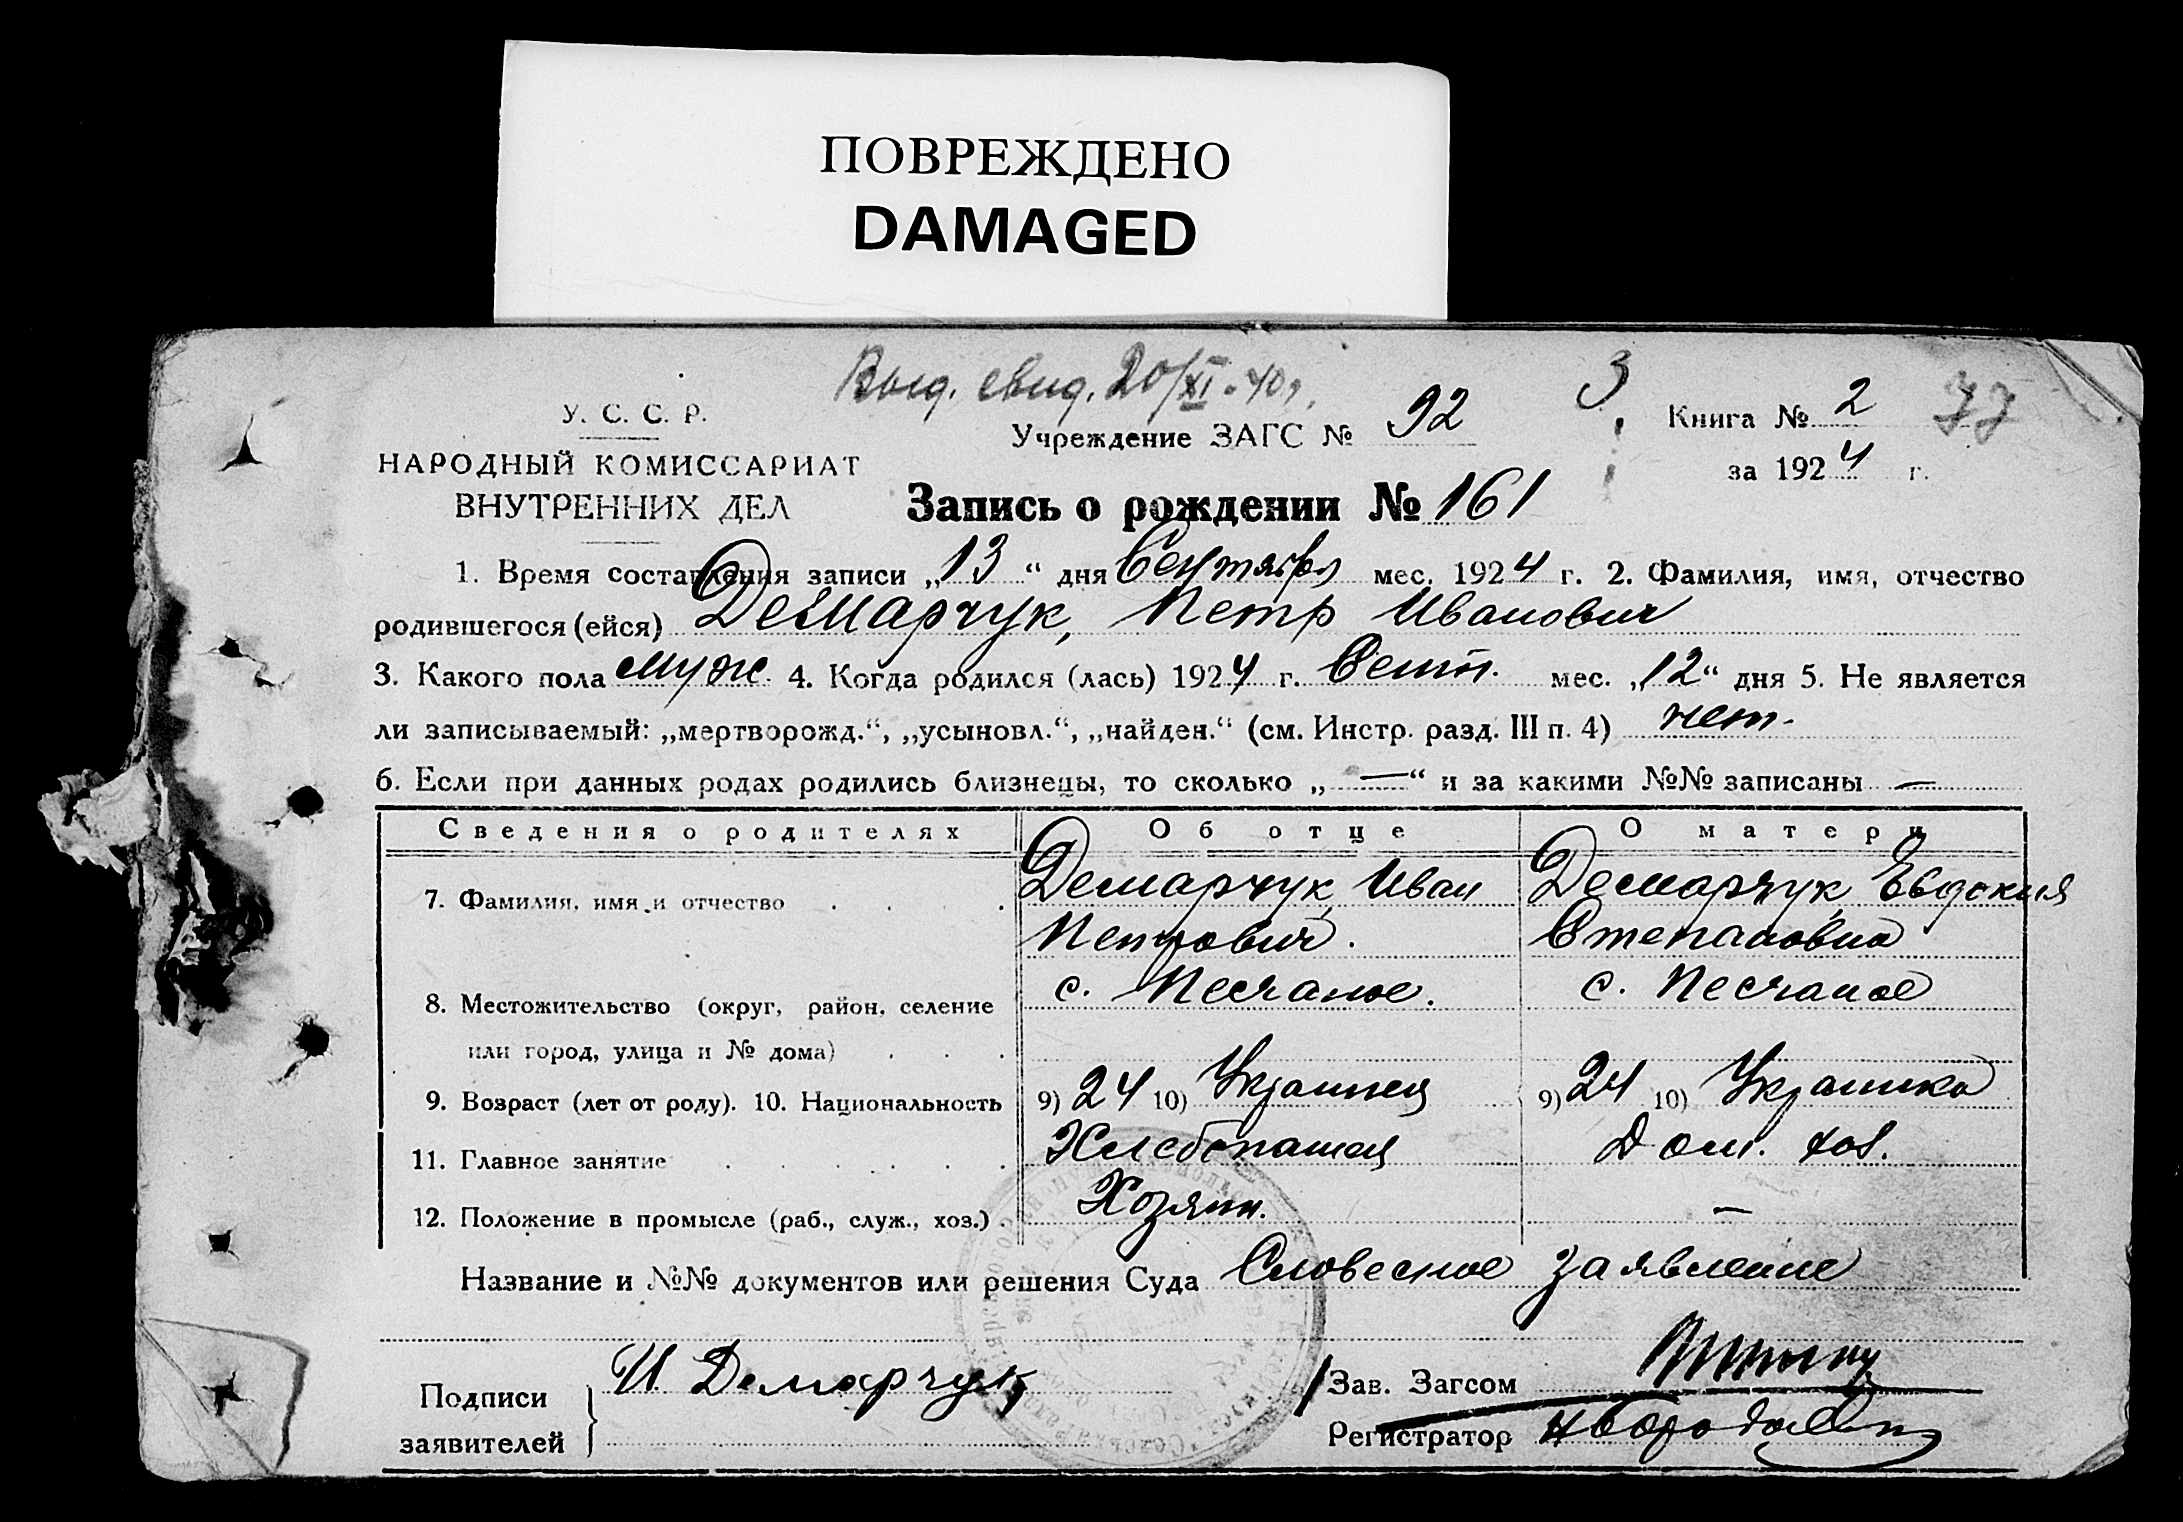 ПОВРЕЖДЕНО
DAMAGED
Выд. свид. 20/XI-40г.
3
У. С. С. Р.
НАРОДНЫЙ КОМИССАРИАТ
ВНУТРЕННИХ ДЕЛ
Учреждение ЗАГС № 92
Книга № 2 77
за 1924 г.
Запись о рождении № 161
1. Время составления записи „13“ дня Сентября мес. 1924 г. 2. Фамилия, имя, отчество
родившегося (ейся) Демарчук, Петр Иванович
3. Какого пола муж. 4. Когда родился (лась) 1924 г. Сент. мес. „12“ дня 5. Не является
ли записываемый: „мертворожд.“, „усыновл.“, „найден.“ (см. Инстр. разд. III п. 4) нет.
6. Если при данных родах родились близнецы, то сколько „—“ и за какими №№ записаны —
Сведения о родителях Об отце О матери
7. Фамилия, имя и отчество . . . . Демарчук, Иван Демарчук, Евдокия
Петрович. Степановна
8. Местожительство (округ, район, селение с. Песчаное. с. Песчаное
или город, улица и № дома) . . .
9. Возраст (лет от роду). 10. Национальность 9) 24 10) Украинец 9) 24 10) Украинка
11. Главное занятие . . . . . . Хлебопашец Дом. хоз.
12. Положение в промысле (раб., служ., хоз.) . Хозяин. —
Название и №№ документов или решения Суда Словесное заявление
Подписи
заявителей
И Демарчук
Зав. Загсом
Регистратор